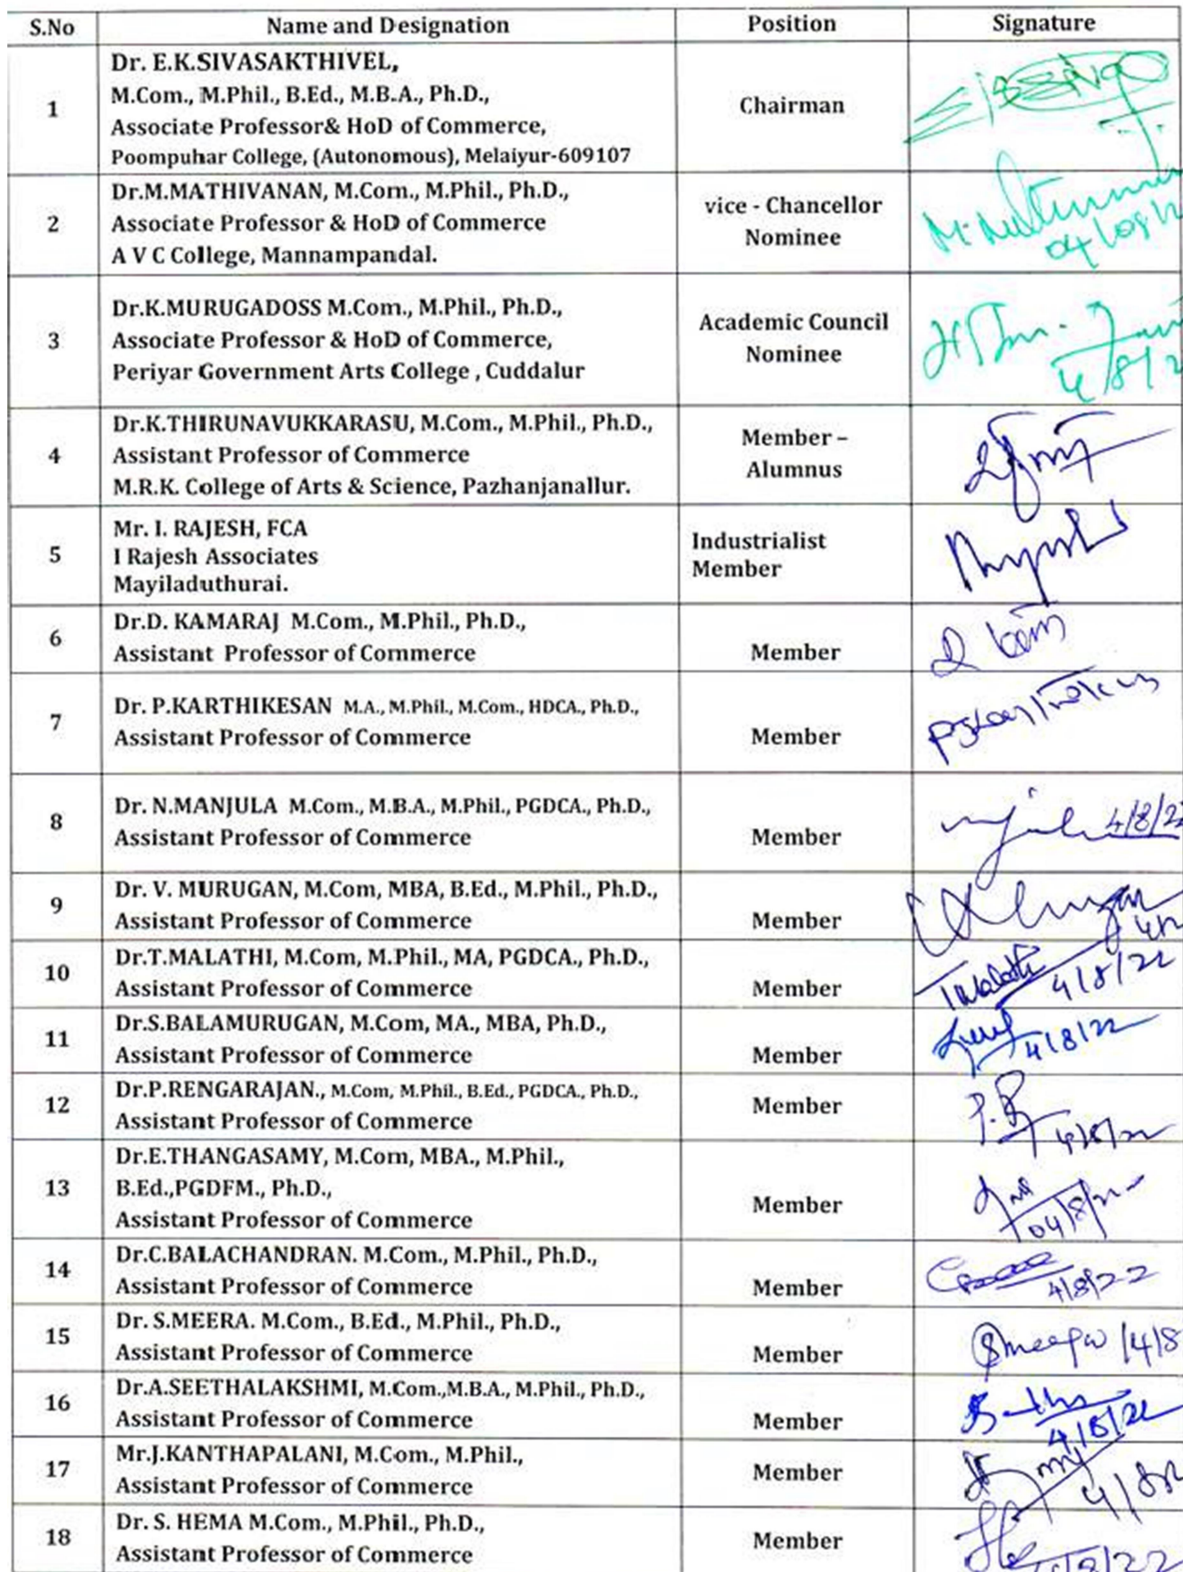 S.No Name and Designation Position Signature
1 Dr. E.K.SIVASAKTHIVEL,
M.Com., M.Phil., B.Ed., M.B.A., Ph.D.,
Associate Professor& HoD of Commerce,
Poompuhar College, (Autonomous), Melaiyur-609107
Chairman
2 Dr.M.MATHIVANAN, M.Com., M.Phil., Ph.D.,
Associate Professor & HoD of Commerce
A V C College, Mannampandal.
vice - Chancellor
Nominee
3 Dr.K.MURUGADOSS M.Com., M.Phil., Ph.D.,
Associate Professor & HoD of Commerce,
Periyar Government Arts College , Cuddalur
Academic Council
Nominee
4 Dr.K.THIRUNAVUKKARASU, M.Com., M.Phil., Ph.D.,
Assistant Professor of Commerce
M.R.K. College of Arts & Science, Pazhanjanallur.
Member –
Alumnus
5 Mr. I. RAJESH, FCA
I Rajesh Associates
Mayiladuthurai.
Industrialist
Member
6 Dr.D. KAMARAJ M.Com., M.Phil., Ph.D.,
Assistant Professor of Commerce
Member
7 Dr. P.KARTHIKESAN M.A., M.Phil., M.Com., HDCA., Ph.D.,
Assistant Professor of Commerce
Member
8 Dr. N.MANJULA M.Com., M.B.A., M.Phil., PGDCA., Ph.D.,
Assistant Professor of Commerce
Member
4/8/22
9 Dr. V. MURUGAN, M.Com, MBA, B.Ed., M.Phil., Ph.D.,
Assistant Professor of Commerce
Member
10 Dr.T.MALATHI, M.Com, M.Phil., MA, PGDCA., Ph.D.,
Assistant Professor of Commerce
Member
4/8/22
11 Dr.S.BALAMURUGAN, M.Com, MA., MBA, Ph.D.,
Assistant Professor of Commerce
Member
4/8/22
12 Dr.P.RENGARAJAN., M.Com, M.Phil., B.Ed., PGDCA., Ph.D.,
Assistant Professor of Commerce
Member
4/8/22
13 Dr.E.THANGASAMY, M.Com, MBA., M.Phil.,
B.Ed.,PGDFM., Ph.D.,
Assistant Professor of Commerce
Member
04/8/22
14 Dr.C.BALACHANDRAN. M.Com., M.Phil., Ph.D.,
Assistant Professor of Commerce
Member
4/8/22
15 Dr. S.MEERA. M.Com., B.Ed., M.Phil., Ph.D.,
Assistant Professor of Commerce
Member
16 Dr.A.SEETHALAKSHMI, M.Com.,M.B.A., M.Phil., Ph.D.,
Assistant Professor of Commerce
Member
4/8/22
17 Mr.J.KANTHAPALANI, M.Com., M.Phil.,
Assistant Professor of Commerce
Member
18 Dr. S. HEMA M.Com., M.Phil., Ph.D.,
Assistant Professor of Commerce
Member